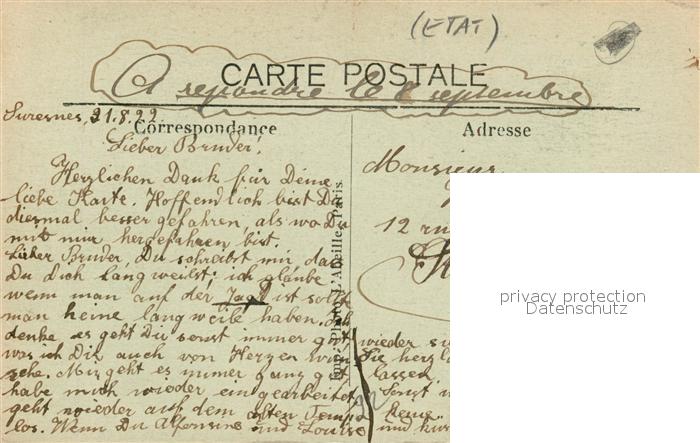 (ETAT)
CARTE POSTALE
A repondre le 8 septembre
Suresnes, 21.8.22
Correspondance
Adresse
Lieber Bruder!
Herzlichen Dank für Deine
liebe Karte. Hoffendlich bist Du
diesmal besser gefahren, als wo Du
mit mir hergefahren bist.
Lieber Bruder, Du schreibst mir, das
Du Dich langweilst; ich glaube
wenn man auf der Jagd ist sollt
man keine langweile haben. Ich
denke es geht Dir sonst immer gut
was ich Dir auch von Herzen wün
sche. Mir geht es immer ganz gut
habe mich wieder eingearbeitet
geht wieder auf dem alten
los. Wenn Du Alfonsine und Louise
Imp. Phot. L'Abeille, Paris
Monsieur
12 ru
wieder s
Sie herzl
lassen.
Sonst
keine
und
privacy protection
Datenschutz